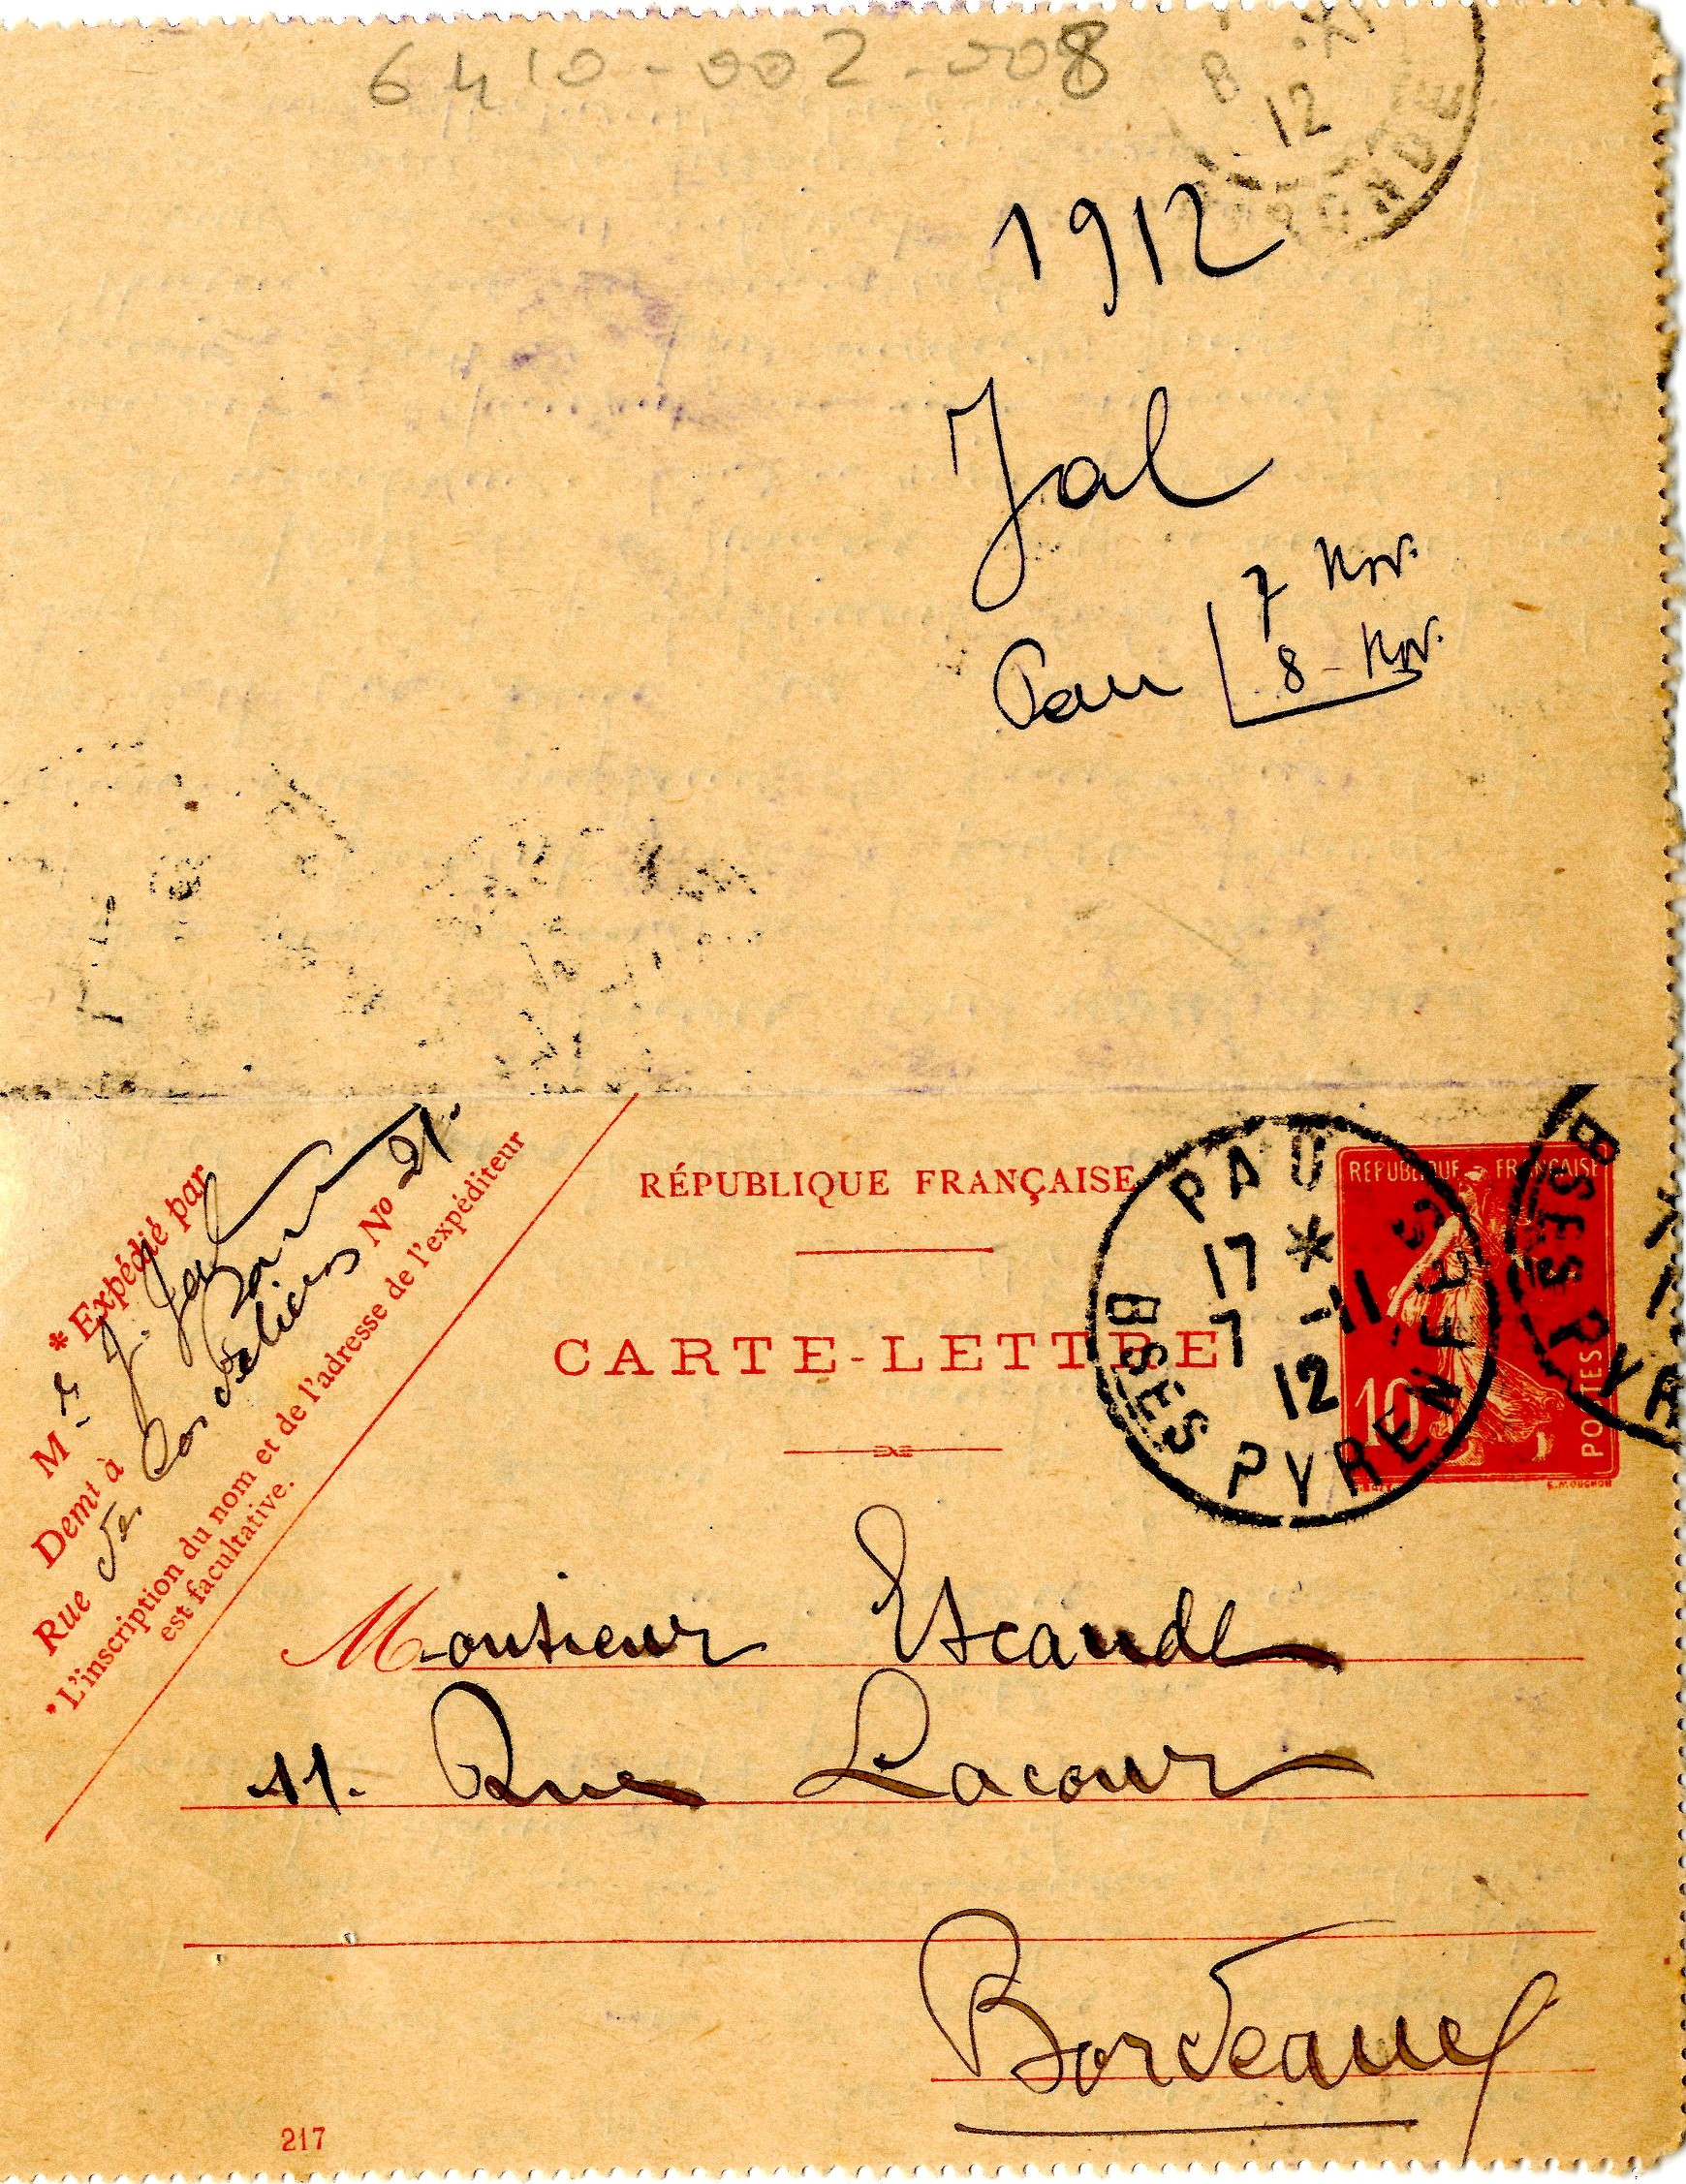 6410-002-008
8
12
RONDE
1912
Jal
Pau 7 Nov.
8 - Nov.
* Expédié par
Mr J. Jal
Demt à Pau
Rue des Cordeliers No 21.
* L'inscription du nom et de l'adresse de l'expéditeur
est facultative.
RÉPUBLIQUE FRANÇAISE
CARTE-LETTRE
PAU
17 *
7 -11
12
BSES PYRENEES
REPUBLIQUE FRANÇAISE
10
POSTES
E. MOUCHON
BSES PYR
Monsieur Escande
11. Rue Lacour
Bordeaux
217